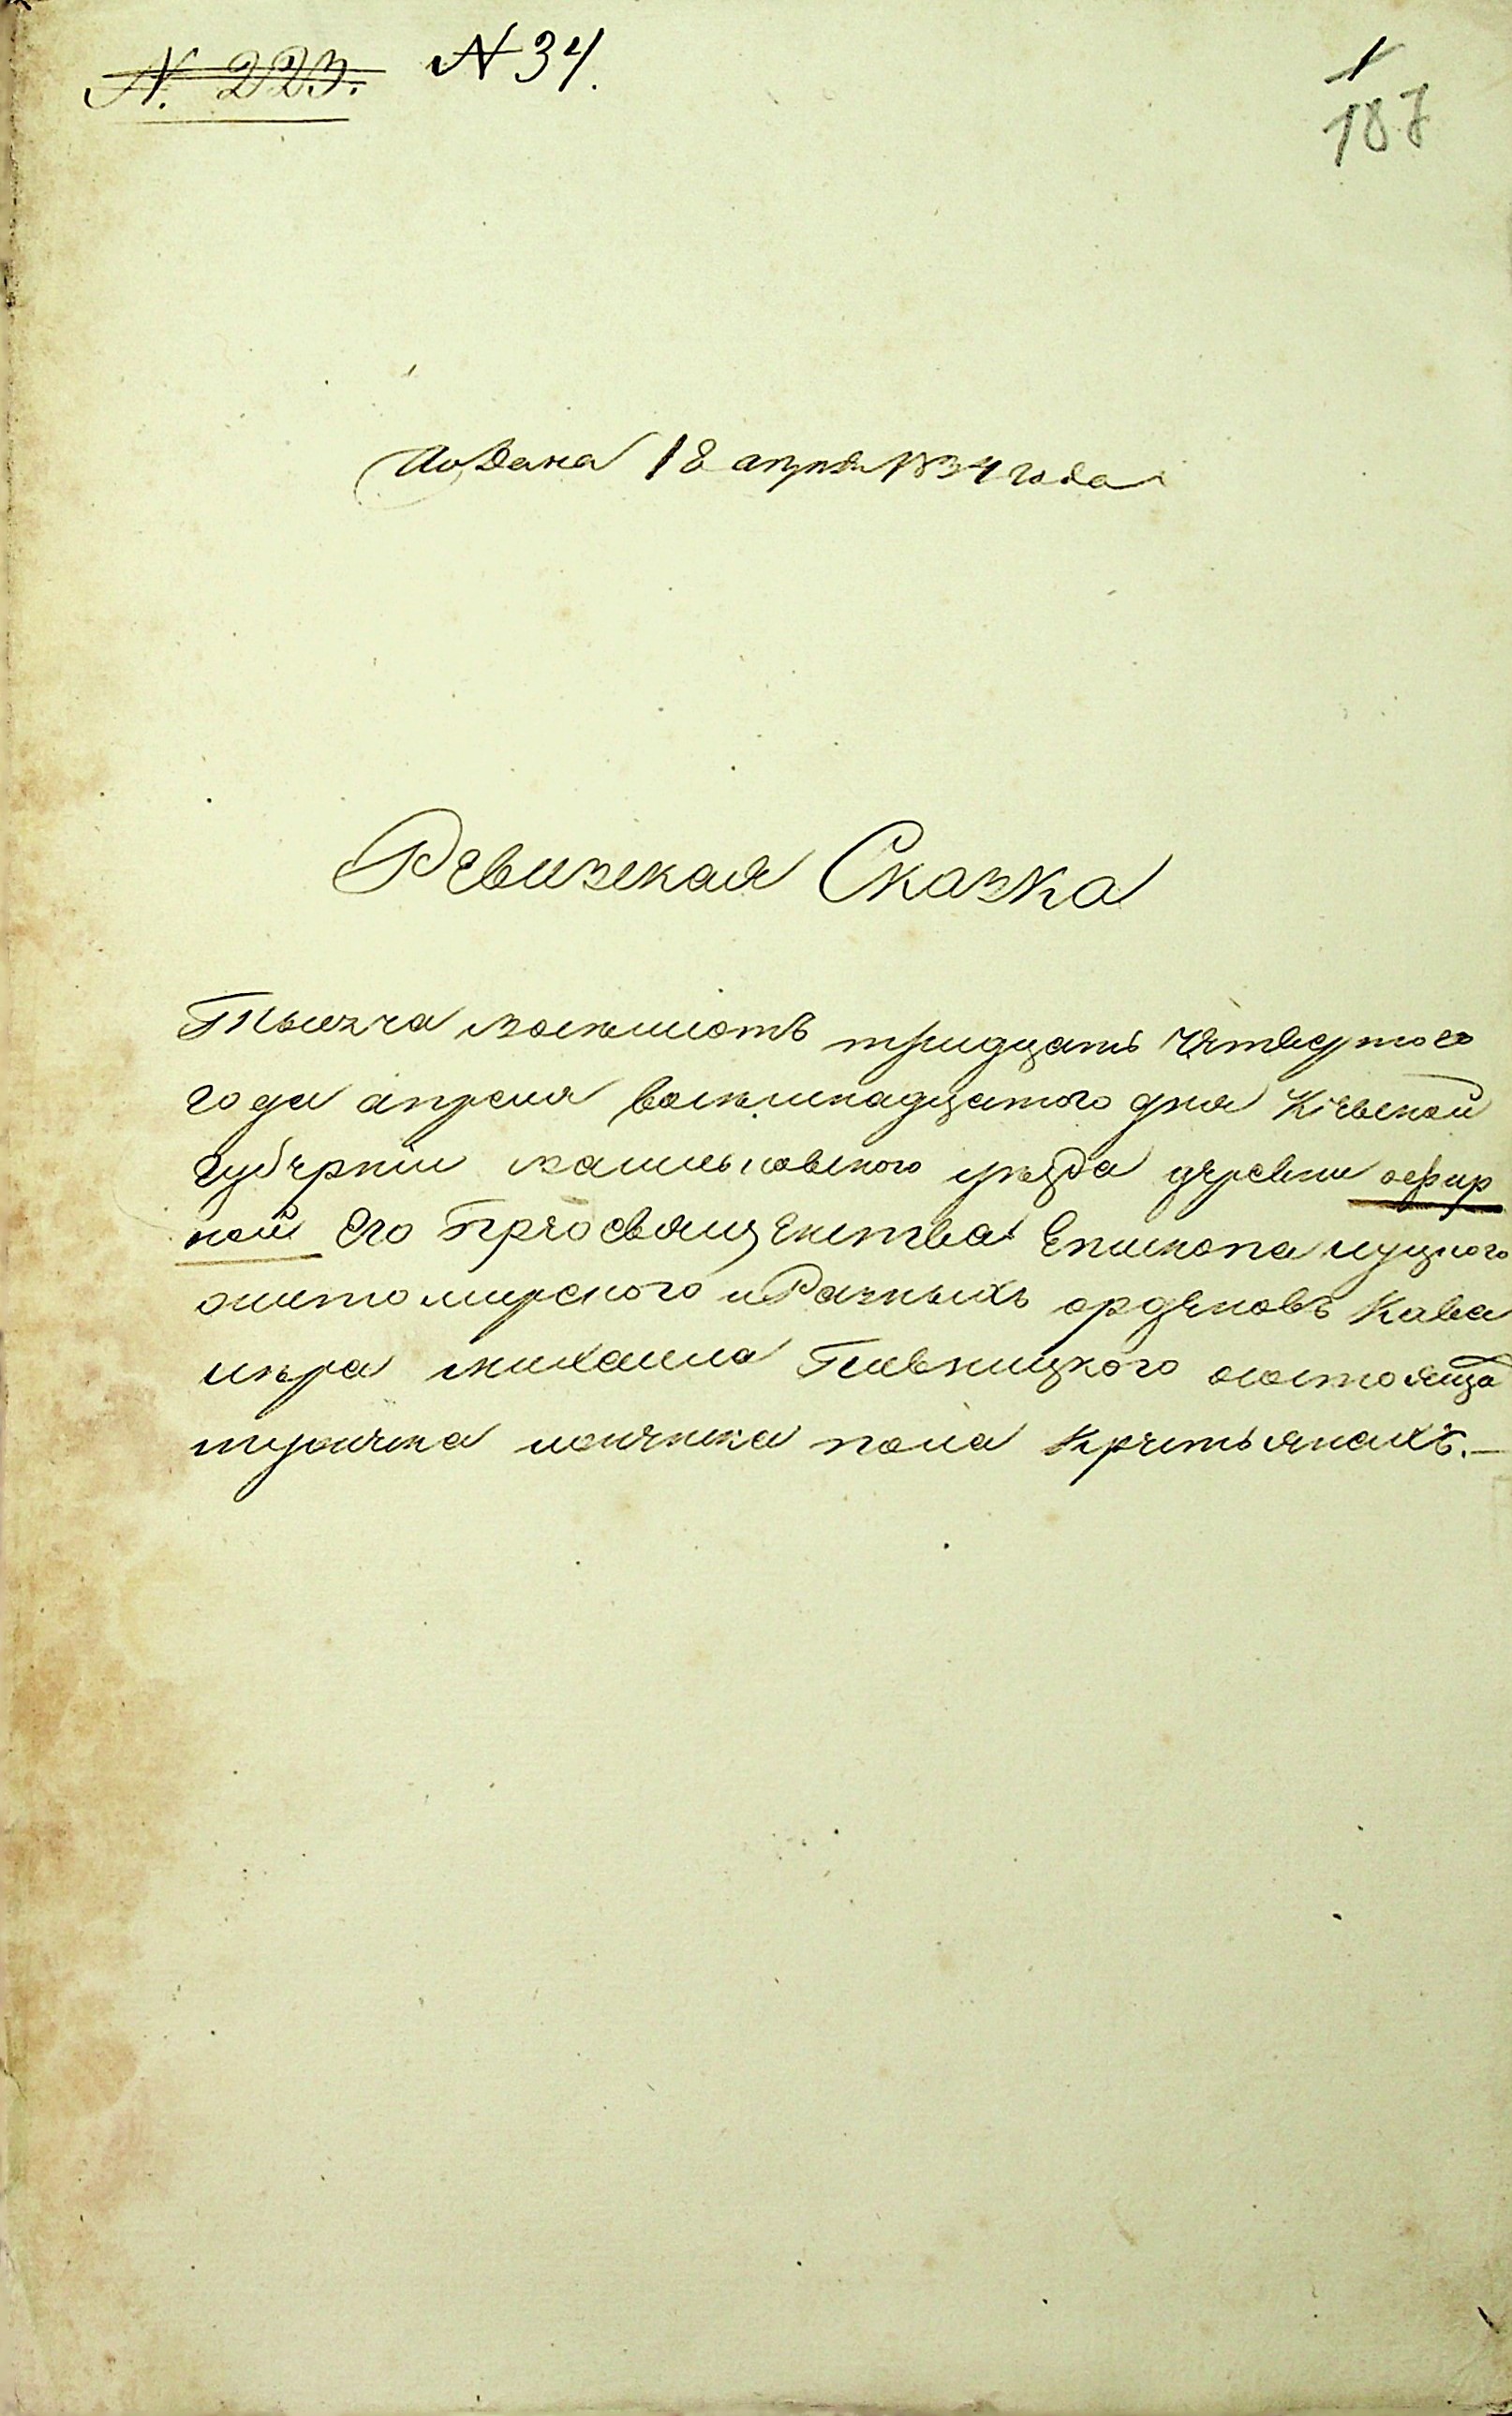 N. 223. N 34.
1
187
Подана 18 апреля 1834 года
Ревизская Сказка
Тысяча восемьсотъ тридцать четвертого
года апреля восемнадцатого дня Кіевской
губерніи васильковского уезда деревни офир
ной Его Преосвященства Епископа луцкого
житомирского и Разныхъ орденовъ Кава
лера михаила Пивницкого о состоящ
мужеска и женска пола Крестьянахъ.—